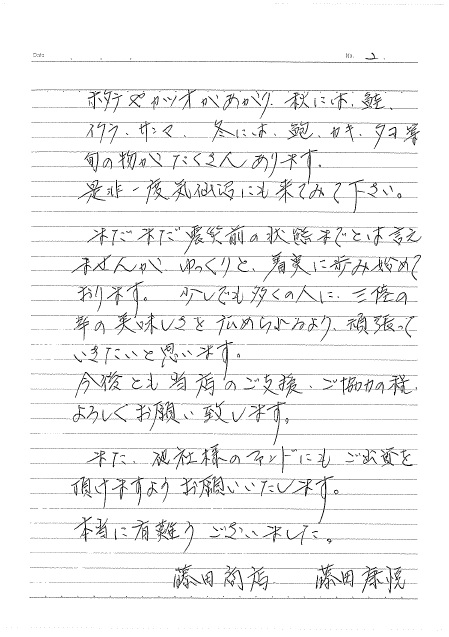 Date . . .
No. 2.
ホタテやカツオがあがり、秋には、鮭、
イクラ、サンマ、冬には、鮑、カキ、タコ等
旬の物がたくさんあります。
是非一度気仙沼にも来てみて下さい。
まだまだ震災前の状態までとは言え
ませんが、ゆっくりと、着実に歩み始めて
おります。少しでも多くの人に、三陸の
幸の美味しさを広められるよう、頑張って
いきたいと思います。
今後とも当店のご支援、ご協力の程、
よろしくお願い致します。
また、他社様のファンドにもご出資を
頂けますようお願いいたします。
本当に有難うございました。
藤田商店 藤田康悦